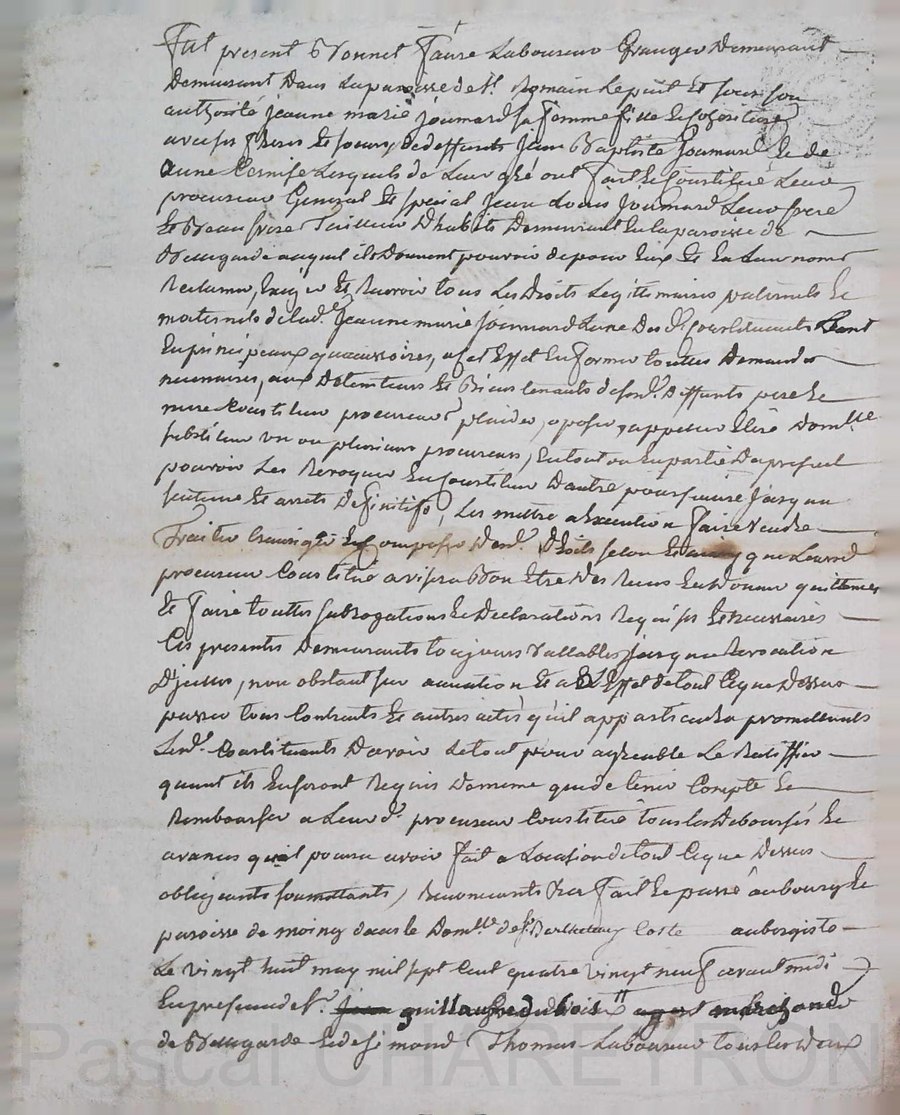 Fut present Bonnet Faure Laboureur Granger Demeurant
Demeurant Dans La paroisse de St. Romain Le puit Et sous son
authorité jeanne marie joumard sa femme fille
avec ses freres Et soeurs, de deffunts Jean Baptiste Joumard Et de
anne Lesquels de Leur gré ont fait Et Constitué Leur
procureur General Et special jean Louis Joumard Leur frere
Et Beau frere Tailleur D'habits Demeurant En la paroisse de
auquel ils Donnent pouvoir de pour Eux Et En Leur noms
Reclamer, Exiger Et Recevoir tous Les Droits Legitimaires paternels Et
maternels de lad. Jeanne marie Joumard L'une Des Ds. Constituants tant
En principeaux qu'accessoires, a cet Effet En former touttes Demandes
necessaires, aux Detenteurs Et Biens tenants desd. Deffunts pere Et
mere Constituer procureurs plaider, oposer, appeller Elire Domlle
substituer un ou plusieurs procureurs, En tout ou En partie Du present
pouvoir Les Revoquer En Constituer D'autre poursuivre jusqu'a
sentence Et arrets Definitifs, Les mettre a Execution faire vendre
Traiter transiger Et Composer Desd. Droits selon Et ainsy que Leurd
procureur Constitué avisera Bon Etre Des Recus En Donner quittances
Et Faire touttes subrogations Et Declarations Requises Et necessaires
Ces presentes Demeurants toujours vallables jusqu'a Revocation
D'jcelles, non obstant sur annation Et a L'Effet de tout Ce que Dessus
passer tous Contrats Et autres actes qu'il appartiendra promettants
Lesd. Constituants D'avoir le tout pour agreable Le Ratiffier
quant ils En seront Requis De meme que de tenir Compte Et
Rembourser a Leurd. procureur Constitué tous les Deboursés Et
avances qu'il poura avoir fait a L'ocasion de tout Ce que Dessus
obligeants soumettants, Renonceants Fait Et passé au bourg Et
paroisse de moing dans le Domlle de sr. Barthelemy Coste aubergiste
Le vingt huit may mil sept Cent quatre vingt neuf avant midi
En presence de sr. marchand
de Et de simond Thomas Laboureur tous les deux
Pascal CHAREYRON